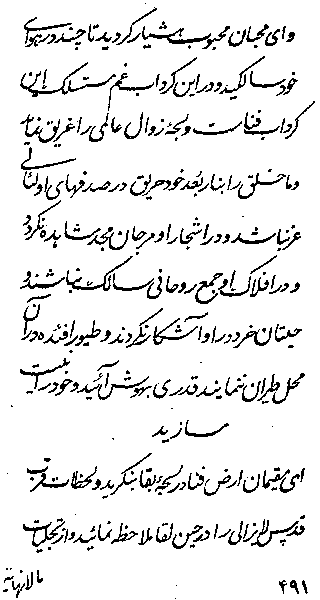 و ای محبان محبوب هشیار گردید تا چند در هوای
خود سالکید و در این گرداب غم مستهلک این
گرداب فناست و لجهٔ زوال عالمی را غریق نماید
و ما خلق را بنار بُعد خود حریق در صدفهای او لئالی
عز نباشد و در اشجار او مرجان مجد مشاهده نگردد
و در افلاک او جمع روحانی سالک نباشند و
حیتان خرد در او آشکار نگردند و طیور افئده در آن
محل طیران ننمایند قدری بهوش آئید و خود را نیست
مسازید
ای مقیمان ارض فنا در لجهٔ بقا بنگرید و لحظات قرب
قدس لایزالی را در حین لقا ملاحظه نمائید و از تجلیات
مالانهایة
۴۹۱